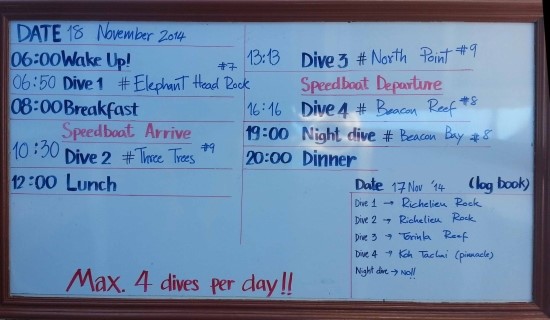 DATE 18 November 2014
06:00 Wake Up!
#7
06:50 Dive 1 # Elephant Head Rock
08:00 Breakfast
Speedboat Arrive
10:30 Dive 2 # Three Trees #9
12:00 Lunch
13:13 Dive 3 # North Point #9
Speedboat Departure
16:16 Dive 4 # Beacon Reef #8
19:00 Night dive # Beacon Bay #8
20:00 Dinner
Date 17 Nov '14 (log book)
Dive 1 → Richelieu Rock
Dive 2 → Richelieu Rock
Dive 3 → Torinla Reef
Dive 4 → Koh Tachai (pinnacle)
Night dive → No!!
Max. 4 dives per day!!